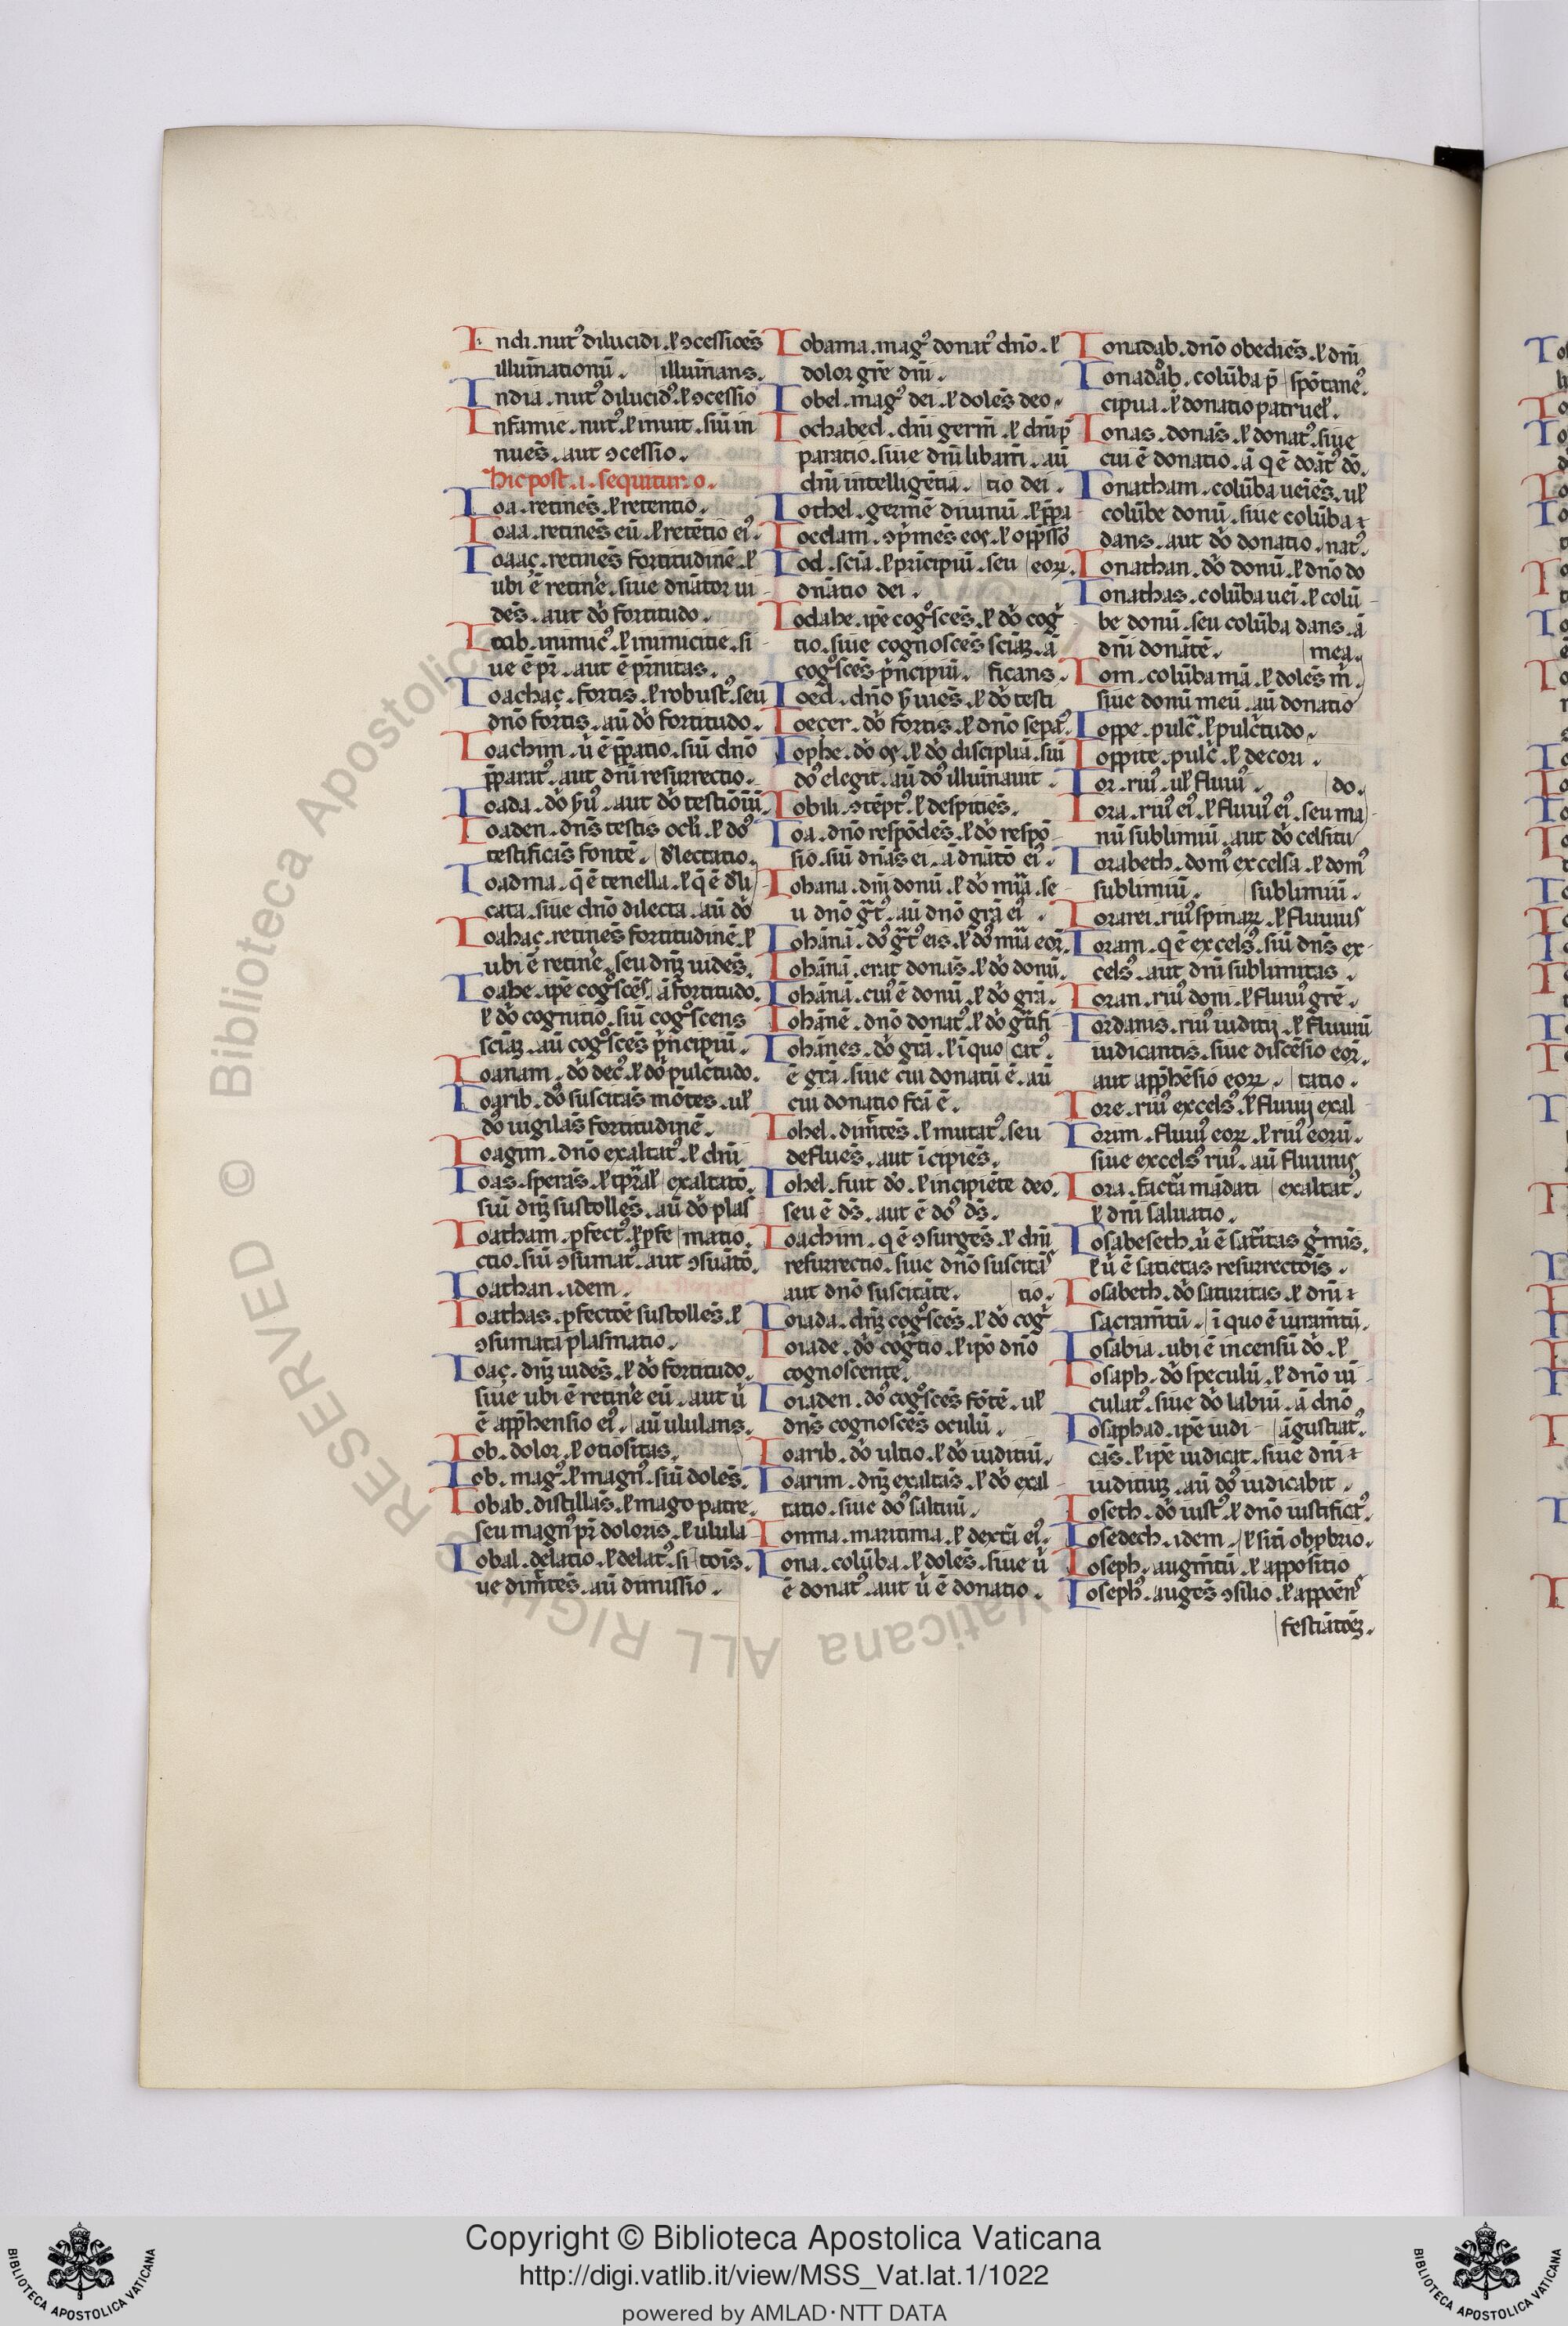 Indi. nut᷒ dilucidi. ł ꝯcessiōēs
illuīnationū. illuīnans.
India. nut᷒ dilucid᷒. ł ꝯcessio
Infamie. nut᷒. ł inuit. siū in
nuēs. aut ꝯcessio.
Hic post. i. sequitur. o.
Ioa. retinēs. ł retentio.
Ioaa. retinēs eū. ł retētio ei᷒.
Ioaaç. retinēs fortitudinē. ł
ubi ē retinē. siue dnātor ui
dēs. aut dō fortitudo.
Ioab. inimic᷒. ł inimicitie. si
ue ē pr̄. aut ē pr̄nitas.
Ioachaç. fortis. ł robust᷒. seu
dnō fortis. aū dō fortitudo.
Ioachim. ū ē p̄patio. siū dnō
p̄parat᷒. aut dnī resurrectio.
Ioada. dō
Ioaden. dn̄s testis oclī. ł dō
testificās fontē. dlectatio.
Ioadma. q̄ ē tenella. ł q̄ ē dli
cata. siue dnō dilecta. aū dō
Ioahaç. retinēs fortitudinē. ł
ubi ē retinē. seu dn̄ȝ uidēs.
Ioahe. ipē cogᵒscēs. ā fortitudo.
ł dō cognitio. siū cogᵒscens
sciāȝ. aū cogᵒscēs pͥncipiū.
Ioanam. dō dec᷒. ł dō pulcͥtudo.
Ioarib. dō suscitās mōtes. ul
dō uigilās fortitudinē.
Ioagim. dnō exaltat᷒. ł dnī
Ioas. sperās. ł tp̄ral exaltatō.
siū dn̄ȝ sustollēs. aū dō plas
Ioatham. ꝑfect᷒. ł ꝑfe matio.
ctio. siū ꝯsumat᷒. aut ꝯsūatō.
Ioathan. idem.
Ioathas. ꝑfectōē sustollēs. ł
ꝯsumati plasmatio.
Ioaç. dn̄ȝ uidēs. ł dō fortitudo.
siue ubi ē retinē eū. aut ū
ē app̄hensio ei᷒. aū ululans.
Iob. dolor. ł otiositas.
Iob. mag᷒. ł magn᷒. siū dolēs.
Iobab. distillās. ł mago patre.
seu magn᷒ pr̄ doloris. ł ulula
Iobal. delatio. ł delat᷒. si toīs.
ue dimͥtēs. aū dimissio.
Iobama. mag᷒ donat᷒ dnō. ł
dolor grē dnī.
Iobel. mag᷒ dei. ł dolēs deo.
Iochabed. dnī germ̄. ł dnī p̄
paratio. siue dnī libam̄. aū
dnī intelligētia. tio dei.
Iothel. germē diuinū. ł p̄pa
Ioedam. ꝯpͥmēs eos. ł opp̄ssō
Iod. sciā. ł principiū. seu eoꝝ.
dnātio dei.
Iodahe. ipē cogᵒscēs. ł dō cogͥ
tio. siue cognoscēs sciāȝ. ā
cogᵒscēs pͥncipiū. ficans.
Ioed. dnō ł dō testi
Ioeçer. dō fortis. ł dnō sepa᷒.
Iophe. dō os. ł dō disciplīa. siū
dō elegit. aū dō illuīnauit.
Iobili. ꝯtēpt᷒. ł despitiēs.
Ioa. dnō respōdēs. ł dō respō
sio. siū dnās ei. ā dnātō ei᷒.
Iohana. dnī donū. ł dō mīa. se
u dnō gͣt᷒. aū dnō grā ei᷒.
Iohānā. dō gͣt᷒ eis. ł dō mīa eoꝝ.
Iohānā. erat donās. ł dō donū.
Iohānā. cui᷒ ē donū. ł dō grā.
Iohānē. dnō donat᷒. ł dō gͣtifi
Iohānes. dō grā. ł ī quo cat᷒.
ē grā. siue cui donatū ē. aū
cui donatio fctā ē.
Iohel. dimͥtēs. ł mutat᷒. seu
defluēs. aut īcipiēs.
Iohel. fuit dō. ł incipiēte deo.
seu ē ds̄. aut ē dō ds̄.
Ioachim. q̄ ē ꝯsurgēs. ł dnī
resurrectio. siue dnō suscitās
aut dnō suscitāte. tio.
Ioiada. dn̄ȝ cogᵒscēs. ł dō cogͥ
Ioiade. dō cogͥtio. ł ipō dnō
cognoscente.
Ioiaden. dō cogᵒscēs fōtē. ul
dn̄s cognoscēs oculū.
Ioarib. dō ultio. ł dō iuditiū.
Ioarim. dn̄ȝ exaltās. ł dō exal
tatio. siue dō saltiū.
Ionma. maritima. ł dextā ei᷒.
Iona. colūba. ł dolēs. siue ū
ē donat᷒. aut ū ē donatio.
Ionadab. dnō obediēs. ł dnī
Ionadab. colūba p̄ spōtane᷒.
cipua. ł donatio patruel.
Ionas. donās. ł donat᷒. siue
cui ē donatio. ā q̄ ē dōat᷒ dō.
Ionatham. colūba ueiēs. ul
colūbe donū. siue colūba ꝛ
dans. aut dō donatio. nat᷒.
Ionathan. dō donū. ł dnō do
Ionathas. colūba uei. ł colū
be donū. seu colūba dans. ā
dnī donātē. mea.
Iom. colūba mā. ł dolēs m̄.
siue donū meū. aū donatio
Ioppe. pulcͣ. ł pulcͥtudo.
Ioppite. pulcͥ. ł decori.
Ior. riu᷒. ul fluui᷒. do.
Iora. riu᷒ ei᷒. ł fluui᷒ ei᷒. seu ma
nū sublimiū. aut dō celsitu
Iorabeth. dom᷒ excelsa. ł dom᷒
sublimiū. sublimiū.
Iorarei. riu᷒ spinaꝝ. ł fluuius
Ioram. q̄ ē excels᷒. siū dn̄s ex
cels᷒. aut dnī sublimitas.
Ioran. riu᷒ doni. ł fluui᷒ grē.
Iordanis. riu᷒ iuditij. ł fluuiū
iudicantis. siue discēsio eoꝝ.
aut app̄hēsio eoꝝ. tatio.
Iore. riu᷒ excels᷒. ł fluuij exal
Iorim. fluui᷒ eoꝝ. ł riu᷒ eorū.
siue excels᷒ riu᷒. aū fluuius
Iora. factā mādati exaltat᷒.
ł dnī saluatio.
Iosabeseth. ū ē satͥitas gͥmīs.
ł ū ē satietas resurrectōis.
Iosabeth. dō saturitas. ł dnī ꝛ
sacramͥtū. ī quo ē iuramͥtū.
Iosabia. ubi ē incensū dō. ł
Iosaph. dō speculū. ł dnō iū
culat᷒. siue dō labiū. ā dnō
Iosaphad. ipē iudi āgustiat᷒.
cās. ł ipē iudicat. siue dnī ꝛ
iuditiuȝ. aū dō iudicabit.
Ioseth. dō iust᷒. ł dnō iustificat᷒.
Iosedech. idem. ł siti obpbrio.
Ioseph. augmͥtū. ł appositio
Ioseph᷒. augēs ꝯsilio. ł appōēns
festīātōēȝ.
Copyright © Biblioteca Apostolica Vaticana
http://digi.vatlib.it/view/MSS_Vat.lat.1/1022
powered by AMLAD·NTT DATA
BIBLIOTECA APOSTOLICA VATICANA
BIBLIOTECA APOSTOLICA VATICANA
© Biblioteca Apostolica Vaticana ALL RIGHTS RESERVED